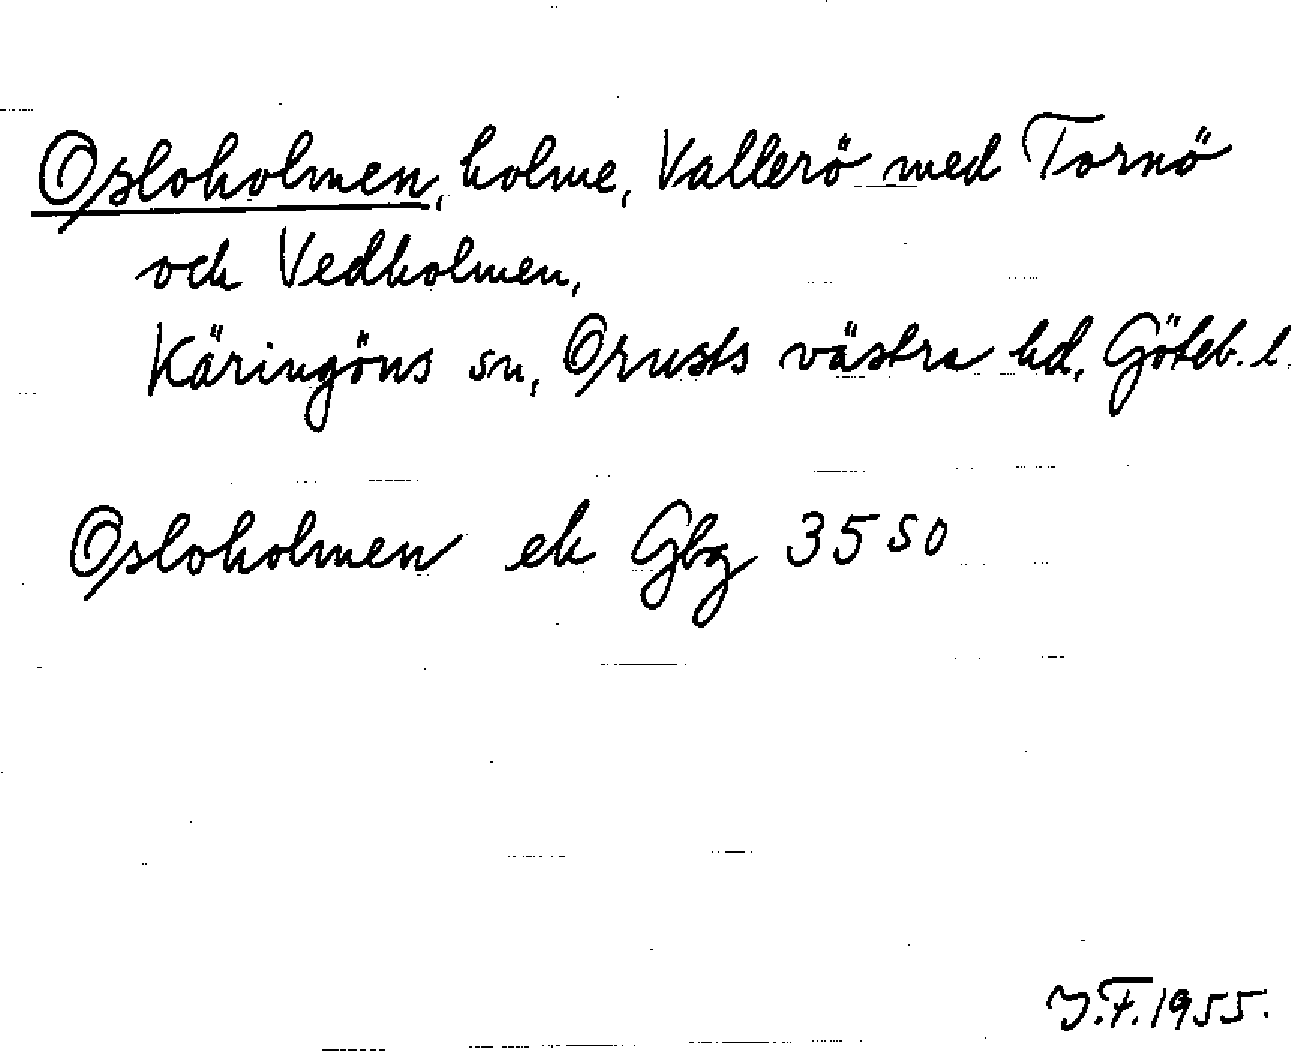 Osloholmen, holme, Vallerö med Tornö
och Vedholmen,
Käringöns sn, Orusts västra hd, Göteb. l.
Osloholmen ek Gbg 35 SO
J.F. 1955.